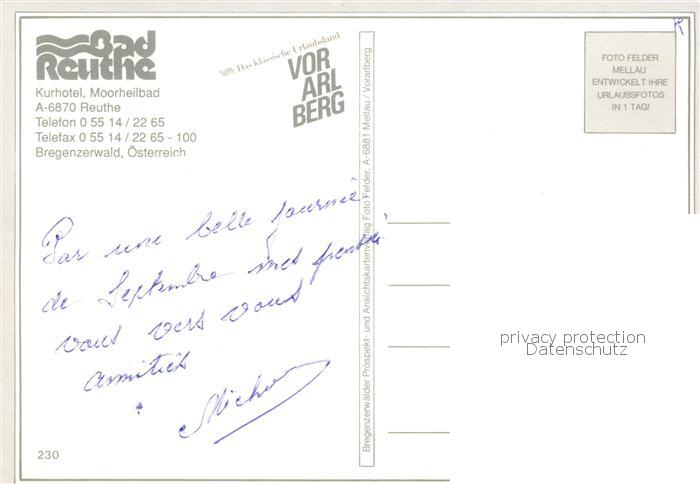 Bad
Reuthe
Kurhotel, Moorheilbad
A-6870 Reuthe
Telefon 0 55 14 / 22 65
Telefax 0 55 14 / 22 65 - 100
Bregenzerwald, Österreich
Das klassische Urlaubsland
VOR
ARL
BERG
FOTO FELDER
MELLAU
ENTWICKELT IHRE
URLAUBSFOTOS
IN 1 TAG!
Par une belle journée
de Septembre mes
vont vers vous
amitiés
230
Bregenzerwälder Prospekt- und Ansichtskartenverlag Foto Felder, A-6881 Mellau / Vorarlberg
privacy protection
Datenschutz